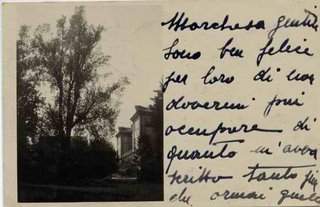 Marchesa gentil
Sono ben felice
per loro di non
dovermi più
occupare di
quanto m'aveva
scritto tanto più
che ormai